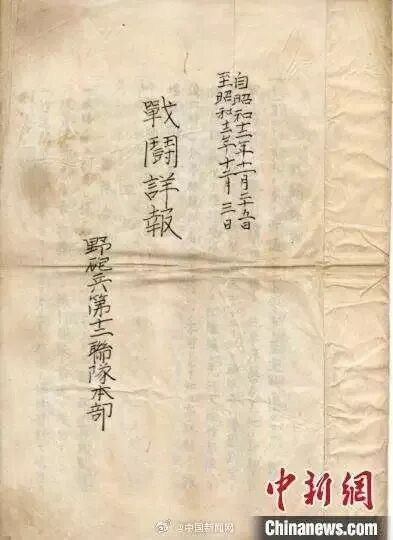 自昭和十二年十一月二十五日
至昭和十二年十二月三日
戰鬪詳報
野砲兵第十二聯隊本部
中新網
Chinanews.com
@中国新闻网